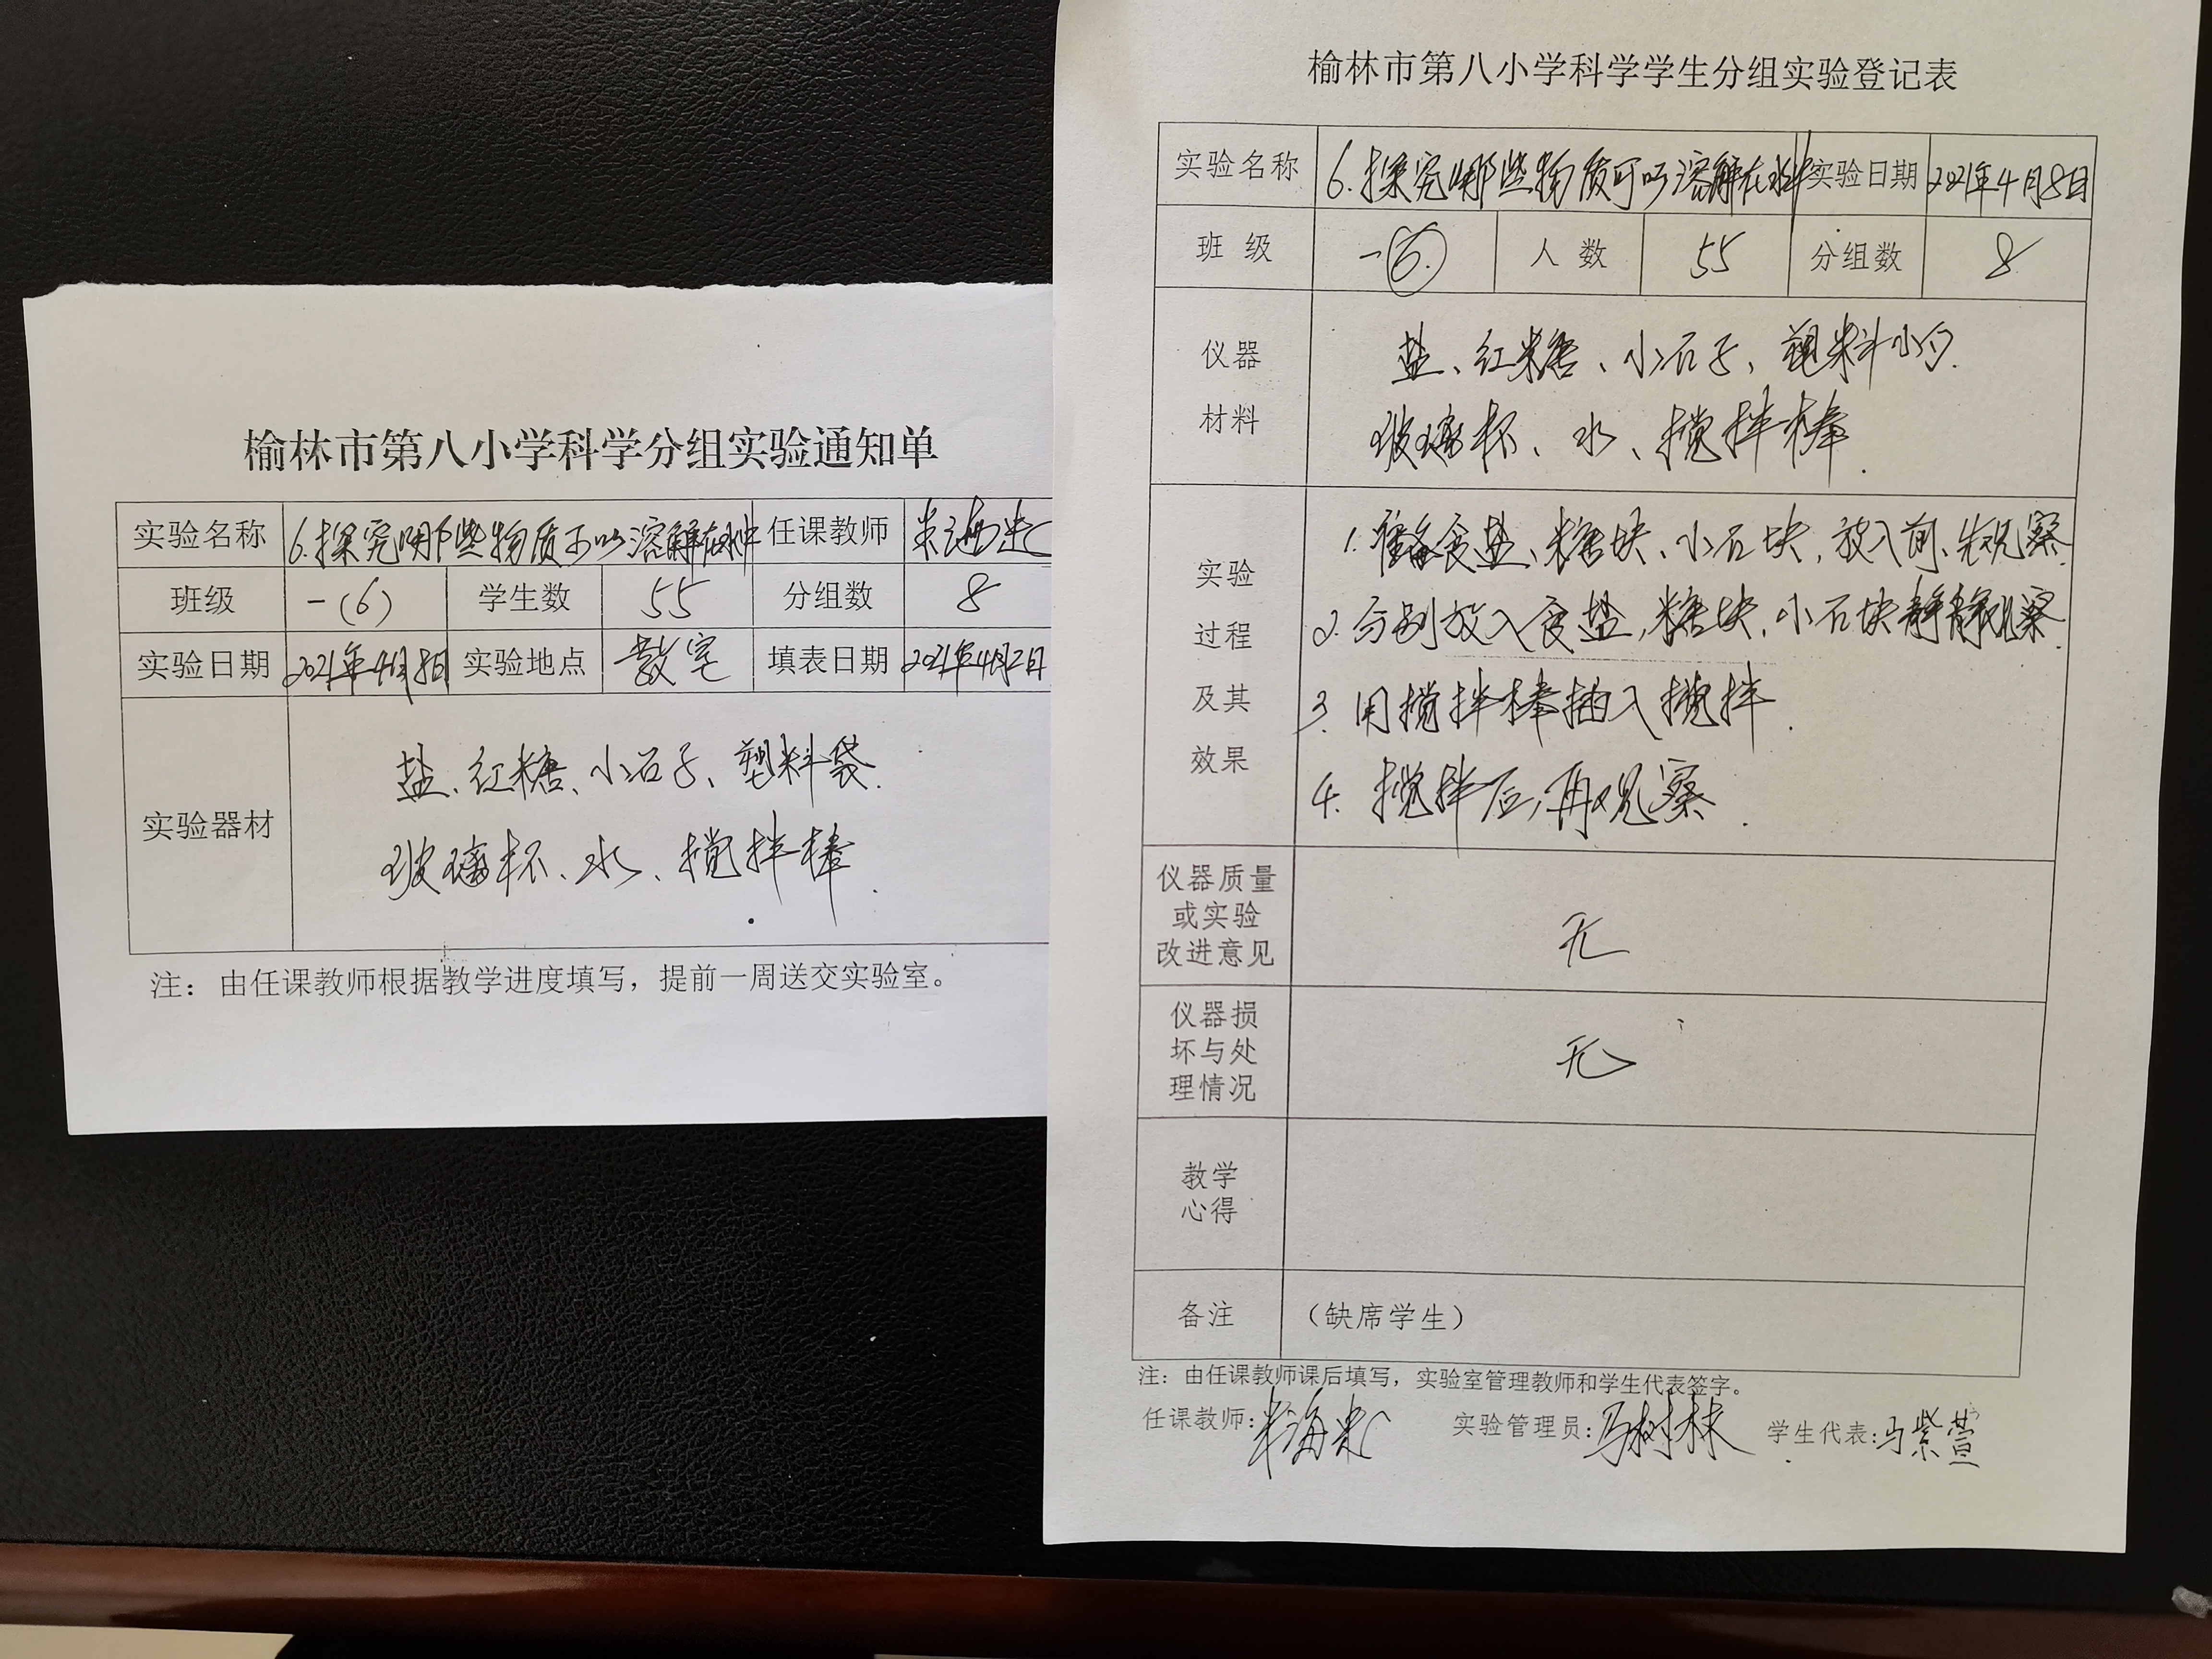 榆林市第八小学科学分组实验通知单
实验名称 6.探究哪些物质可以溶解在水中 任课教师
班级 一(6) 学生数 55 分组数 8
实验日期 2021年4月8日 实验地点 教室 填表日期 2021年4月2日
盐、红糖、小石子、塑料袋.
实验器材
玻璃杯、水、搅拌棒.
注：由任课教师根据教学进度填写，提前一周送交实验室。
榆林市第八小学科学学生分组实验登记表
实验名称 6.探究哪些物质可以溶解在水中 实验日期 2021年4月8日
班 级 一(6) 人 数 55 分组数 8
仪器 盐、红糖、小石子、塑料小勺.
材料 玻璃杯、水、搅拌棒.
1.准备食盐、糖块、小石块,放入前、先观察.
实验
2.分别放入食盐,糖块,小石块静静观察.
过程
及其 3.用搅拌棒插入搅拌.
效果 4.搅拌后,再观察.
仪器质量
或实验 无
改进意见
仪器损
坏与处 无
理情况
教学
心得
备注 （缺席学生）
注：由任课教师课后填写，实验室管理教师和学生代表签字。
任课教师: 实验管理员:马树林 学生代表:马紫萱